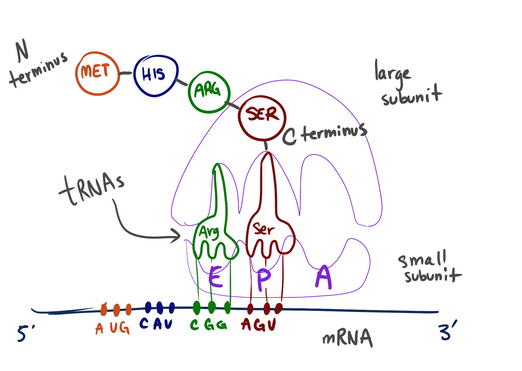 N
terminus
MET
HIS
ARG
SER
C terminus
large
subunit
tRNAs
Arg
Ser
E
P
A
small
subunit
5'
AUG
CAU
CGG
AGU
mRNA
3'